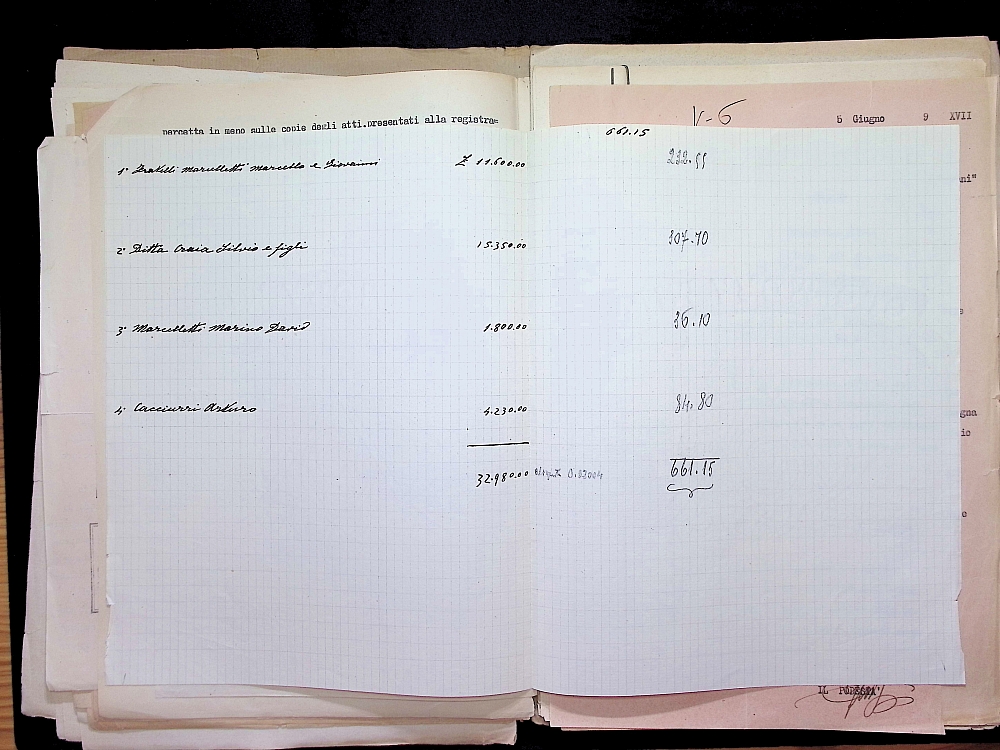 percetta in meno sulle copie degli atti.presentati alla registra=
V-6
5 Giugno 9 XVII
661.15
1° Fratelli Marcelletti Marcello e Giovanni £ 11.600.00 232.55
ani"
2° Ditta Craia Silvio e figli 15.350.00 307.70
3° Marcelletti Marino David 1.800.00 36.10
4° Cacciurri Arturo 4.230.00 84.80
gna
io
32.980.00 0.02004 661.15
e
IL PODESTA'